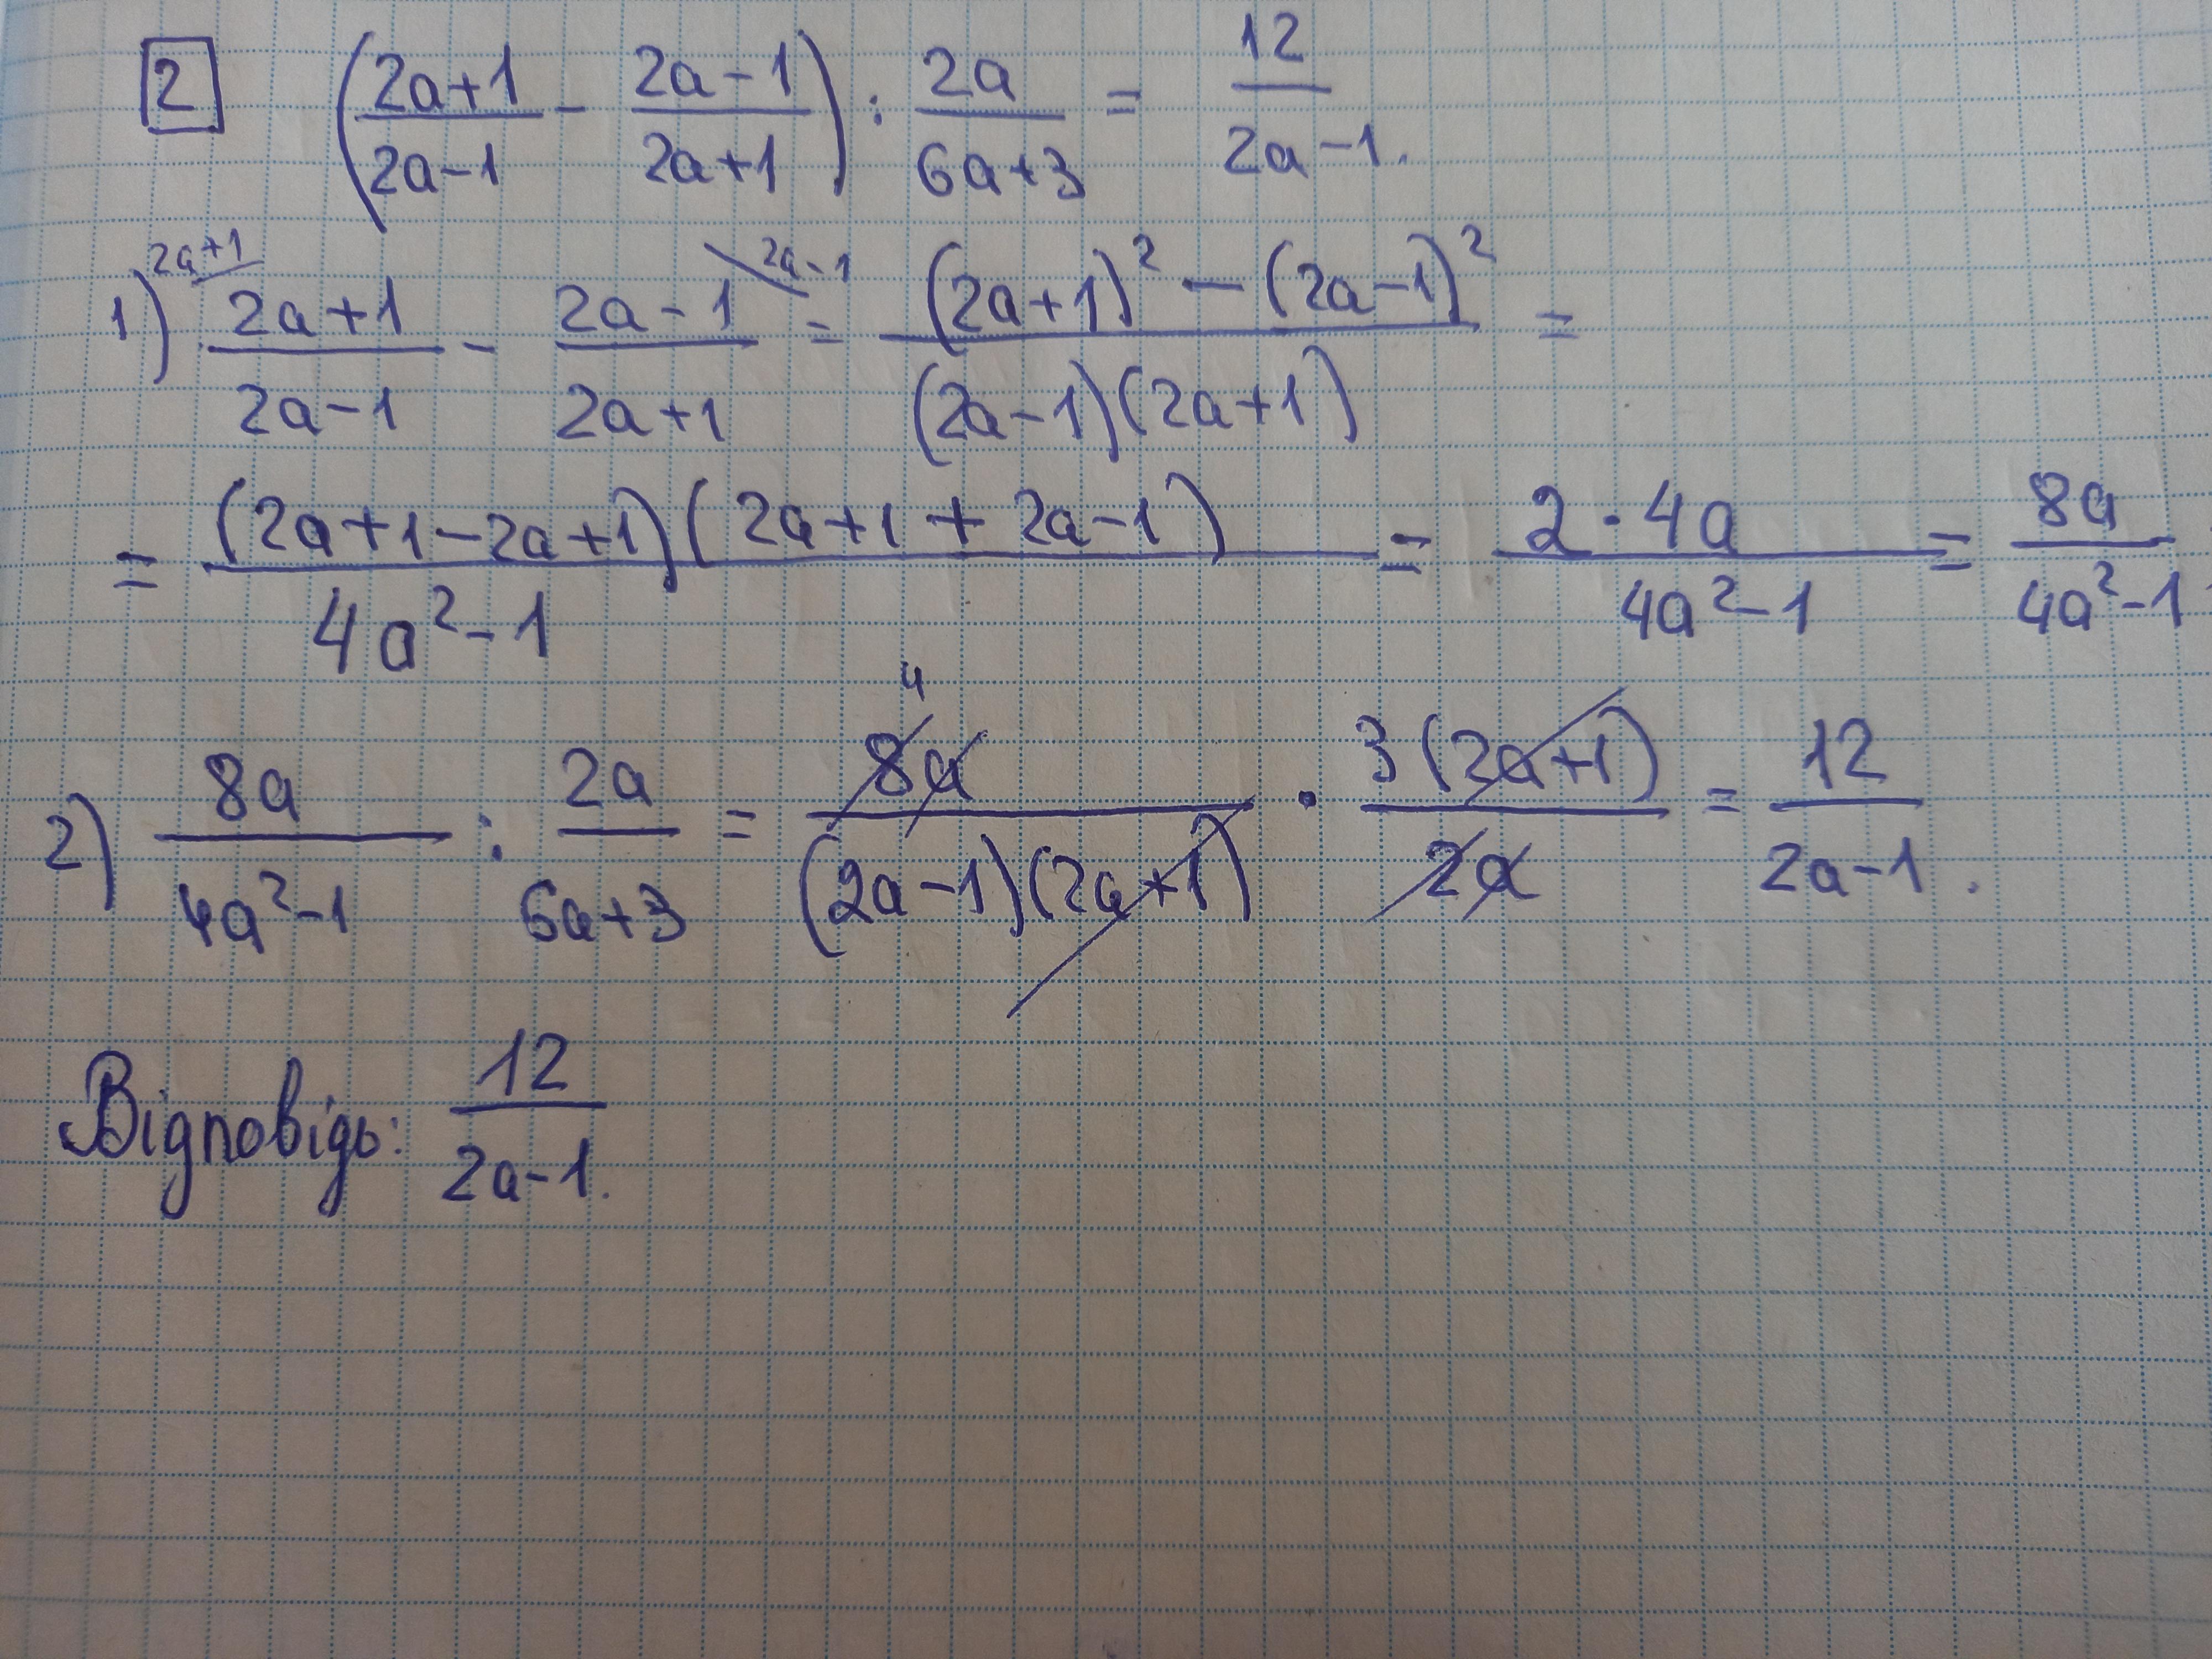 2 ( (2a+1)/(2a-1) - (2a-1)/(2a+1) ) : 2a/(6a+3) = 12/(2a-1).
1) (2a+1)/(2a-1) ^(2a+1) - (2a-1)/(2a+1) ^(2a-1) = ((2a+1)² - (2a-1)²)/((2a-1)(2a+1)) =
= ((2a+1-2a+1)(2a+1+2a-1))/(4a²-1) = (2·4a)/(4a²-1) = 8a/(4a²-1)
2) 8a/(4a²-1) : 2a/(6a+3) = 8a ^4/((2a-1)(2a+1)) · 3(2a+1)/2a = 12/(2a-1).
Відповідь: 12/(2a-1).